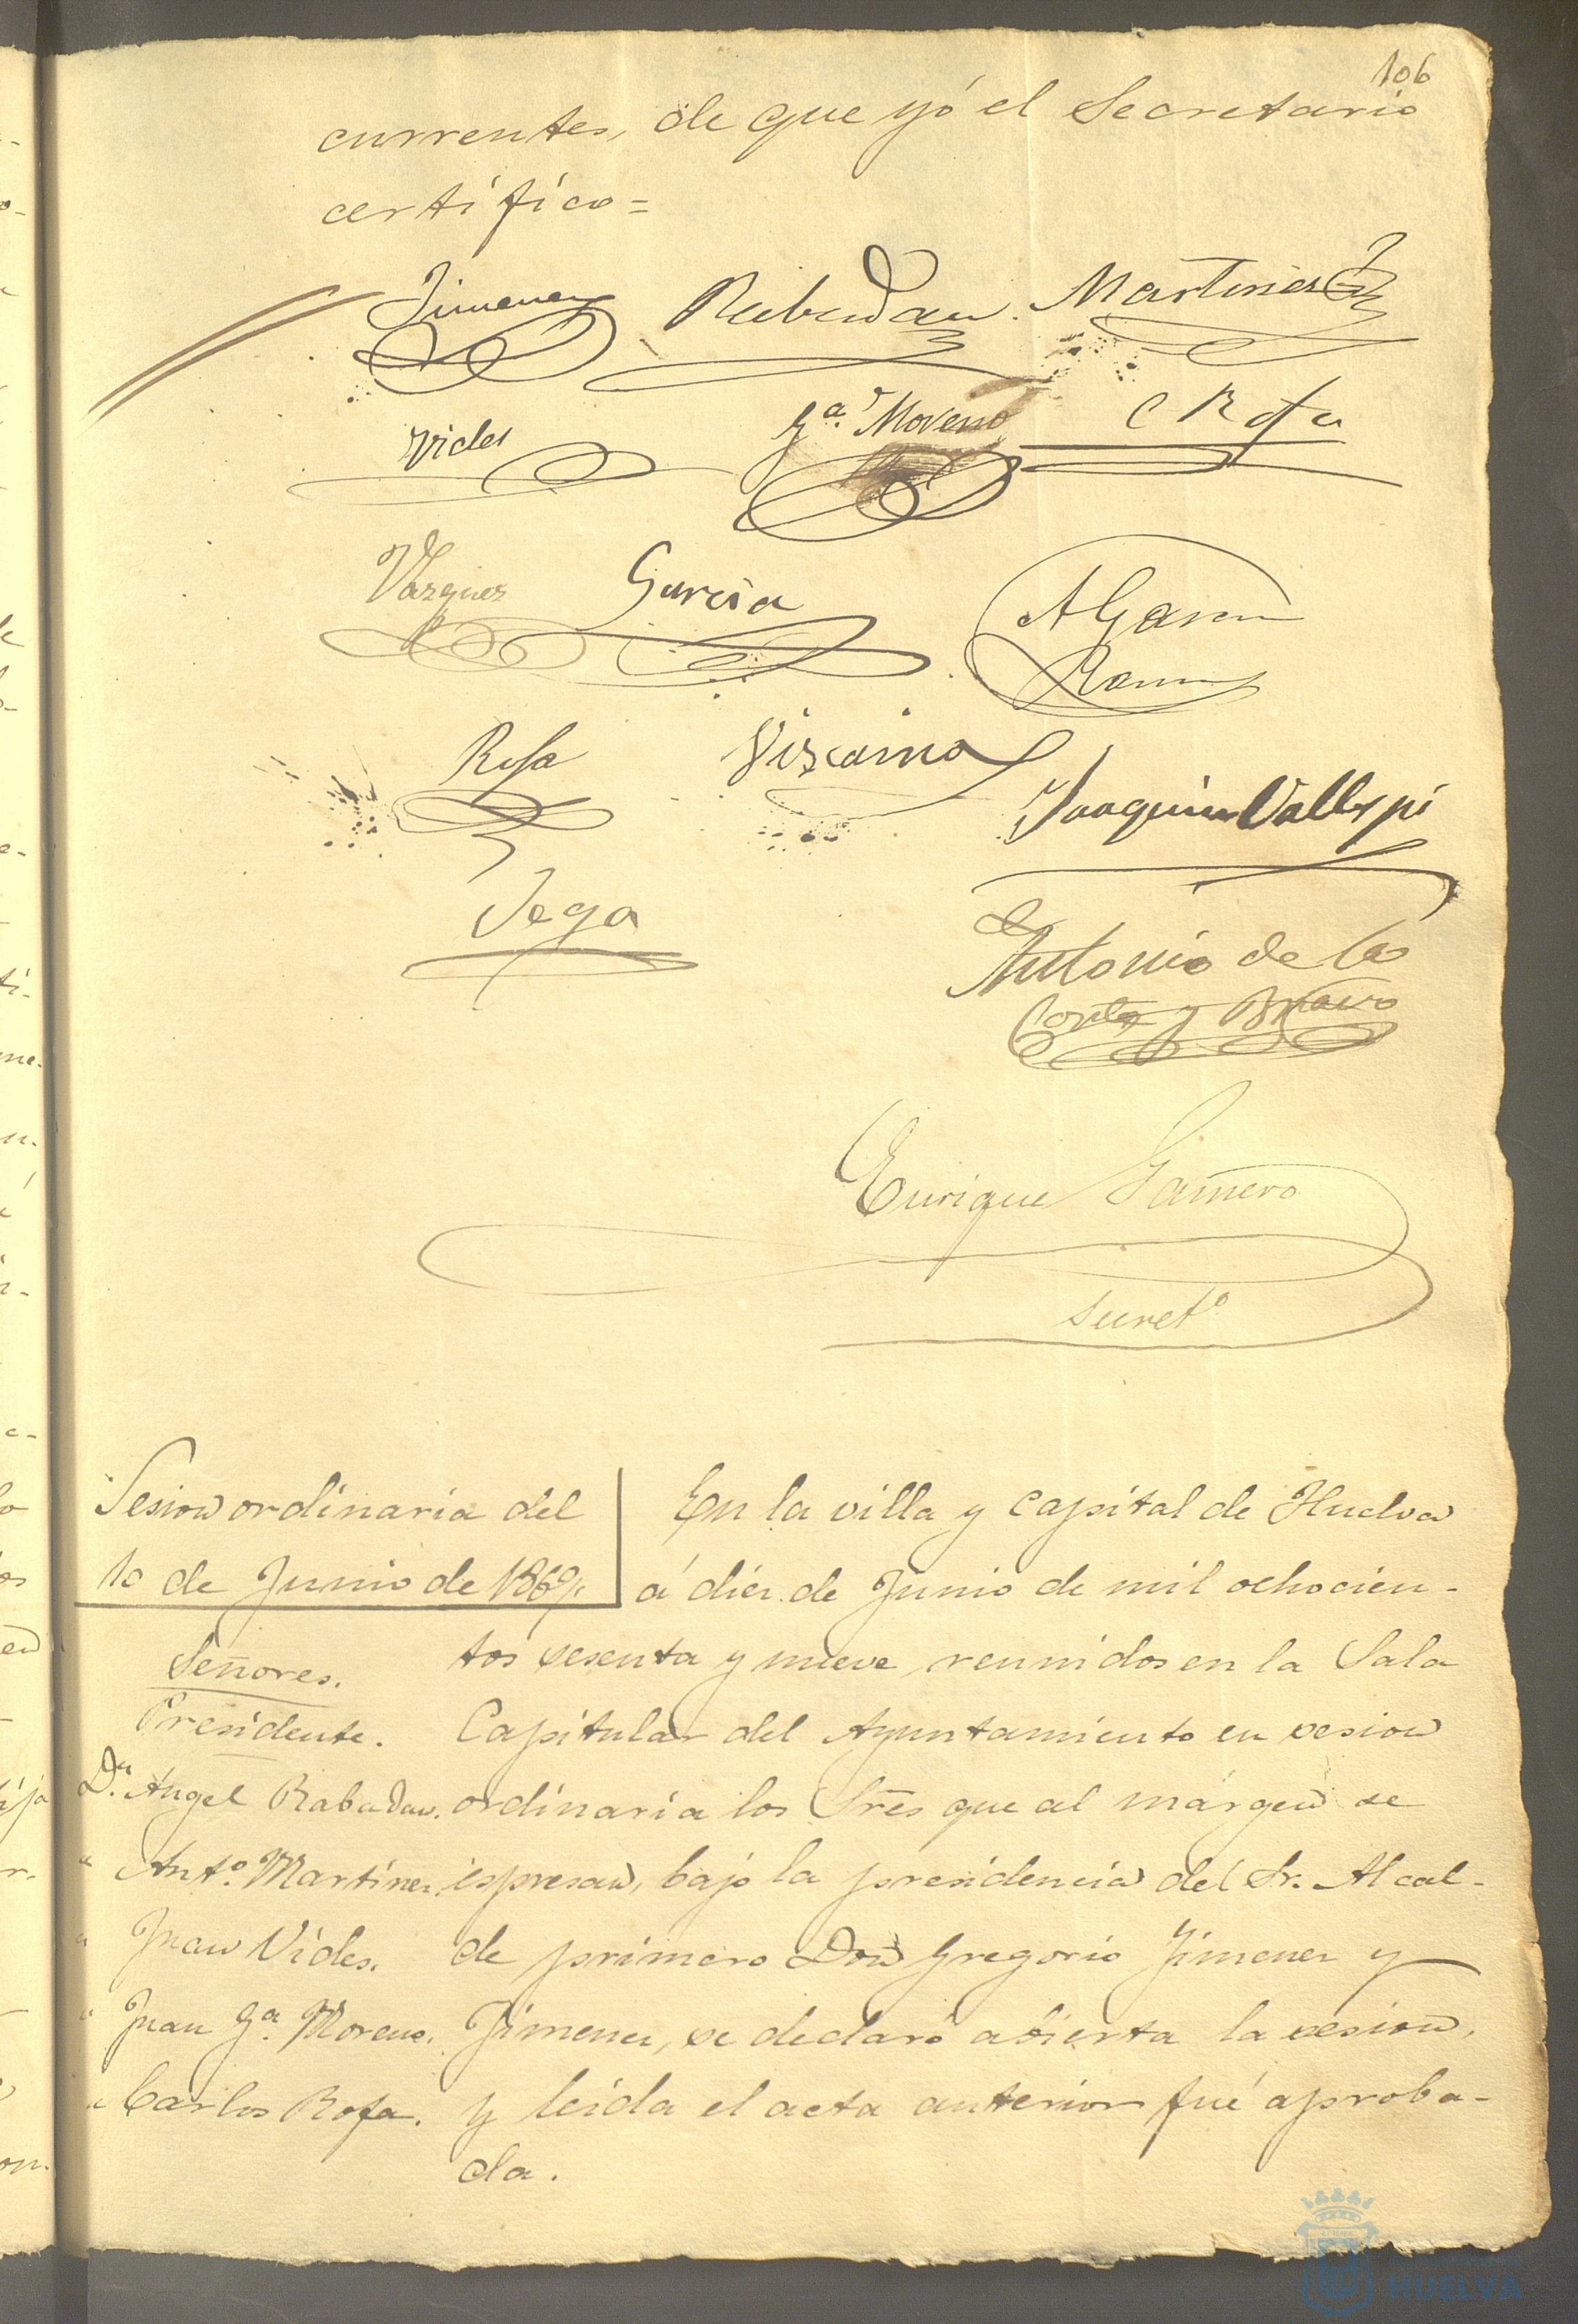 106
currentes, de que yó el Secretario
certifico=
Jimenez Rabadan Martinez
Vides Gª Moreno C Rofa
Vazquez Garcia A Garcia
Ramos
Rofa Viscaino
Joaquin Vallespi
Vega
Antonio de la
Corte y Bravo
Enrique Gamero
Secretº
Sesion ordinaria del
10 de Junio de 1869.
Señores.
Presidente.
Dn. Angel Rabadan.
" Antº. Martinez.
" Juan Vides.
" Juan Gª. Moreno.
" Carlos Rofa.
En la villa y capital de Huelva
á diez de Junio de mil ochocien-
tos sesenta y nueve, reunidos en la Sala
Capitular del Ayuntamiento en sesion
ordinaria los Sres que al márgen se
espresan, bajo la presidencia del Sr. Alcal-
de primero Don Gregorio Jimenez y
Jimenez, se declaró abierta la sesion,
y leida el acta anterior fué aproba-
da.
HUELVA